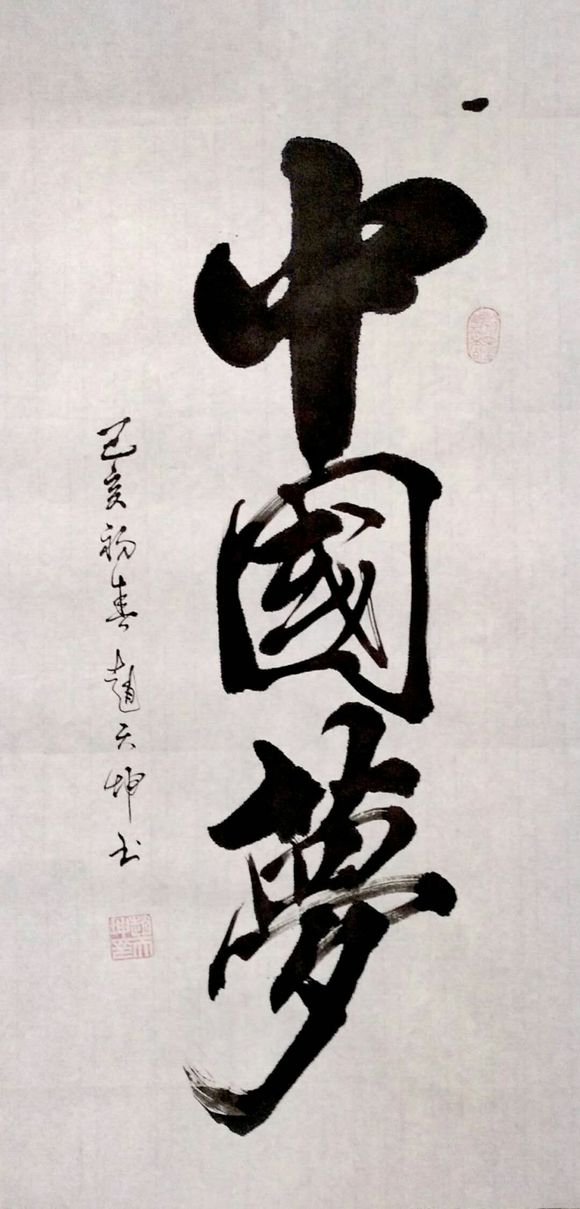 中國夢
己亥初春趙天坤书